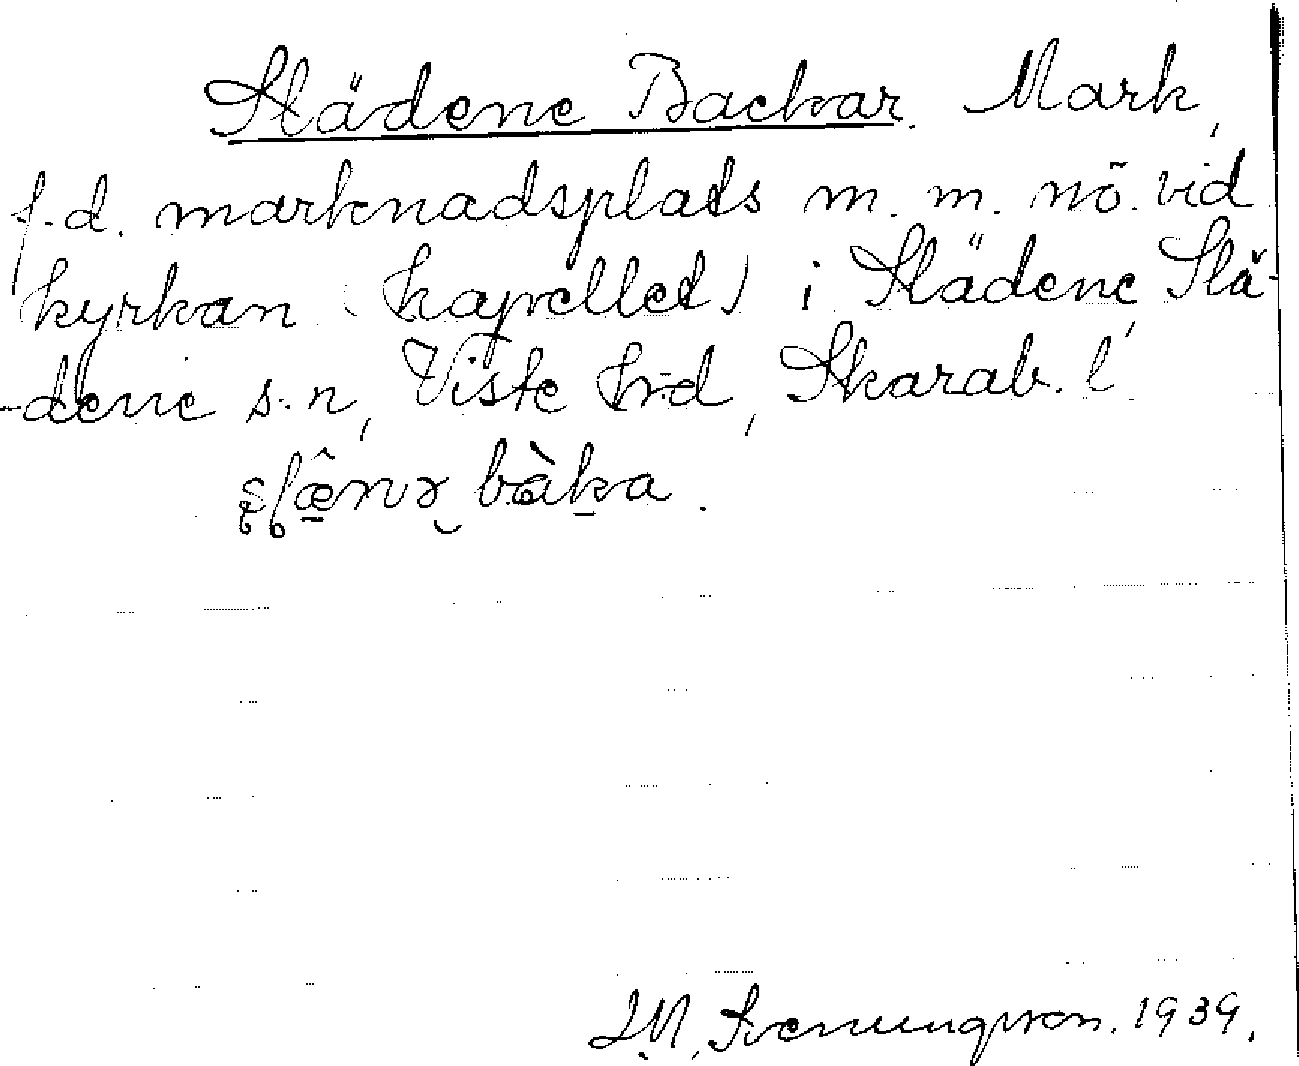 Slädene Backar. Mark,
f.d. marknadsplats m. m. nö. vid
kyrkan (kapellet) i Slädene, Slä-
-dene s-n, Viste h-d, Skarab. l.
bàka.
Svenungsson. 1939.